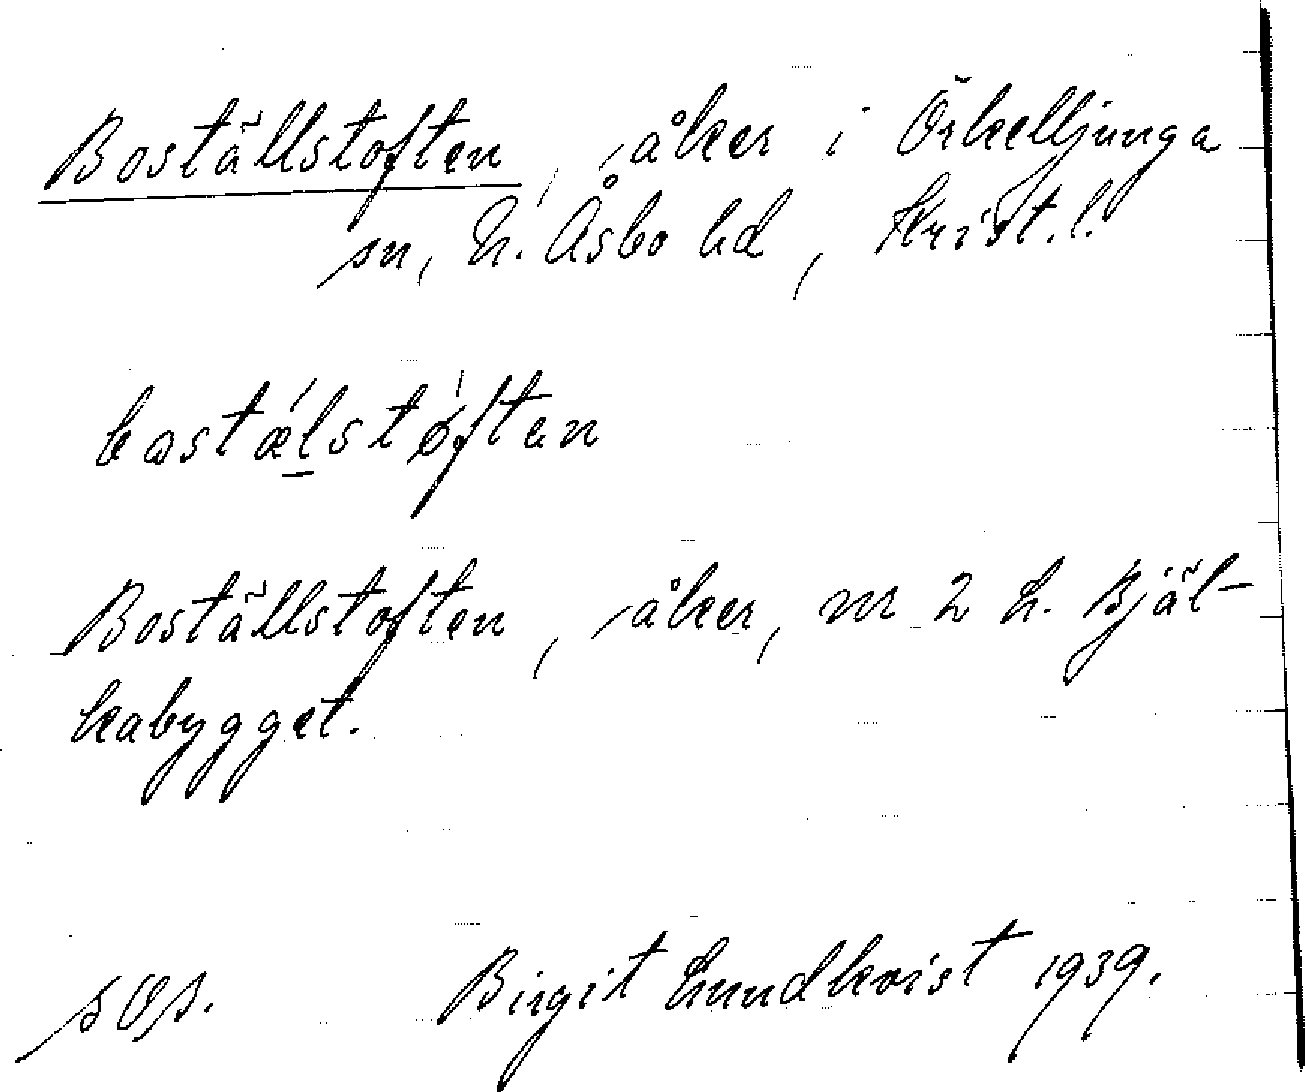 Boställstoften, åker i Örkelljunga
sn, N. Åsbo hd, Krist. l.
bostælstøften
Boställstoften, åker, nr 2 L. Bjäl-
kabygget.
SOS. Birgit Lundkvist 1939.